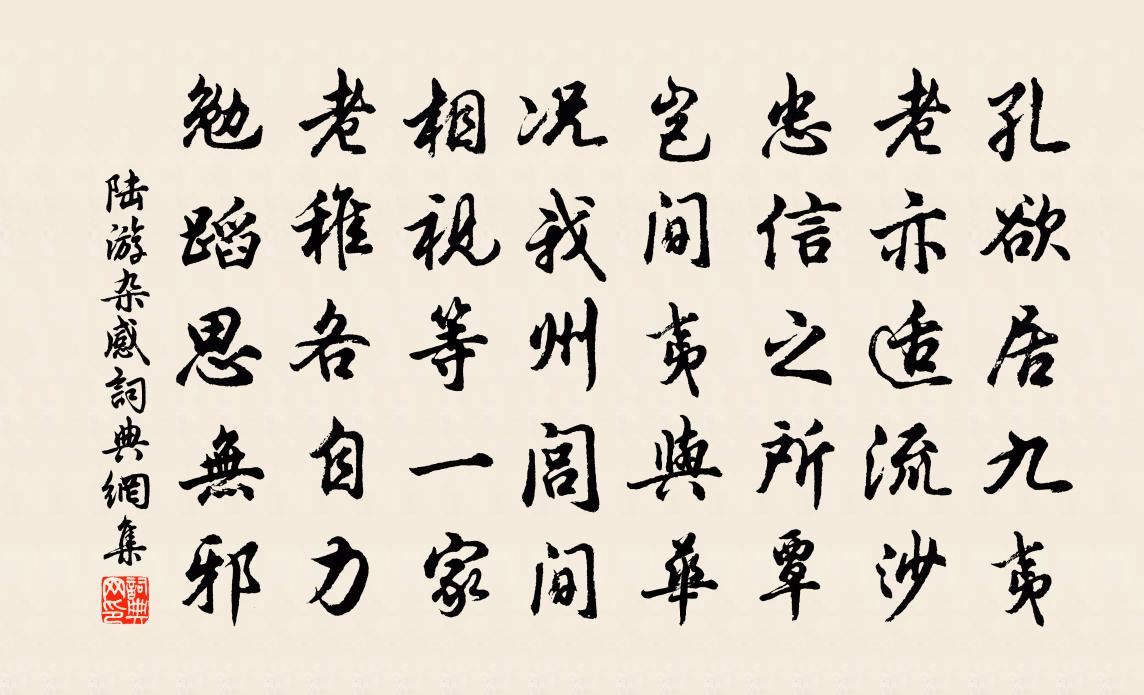 孔欲居九夷
老亦适流沙
忠信之所覃
岂间夷與華
况我州闾间
相視等一家
老稚各自力
勉蹈思無邪
陆游杂感詞典網集